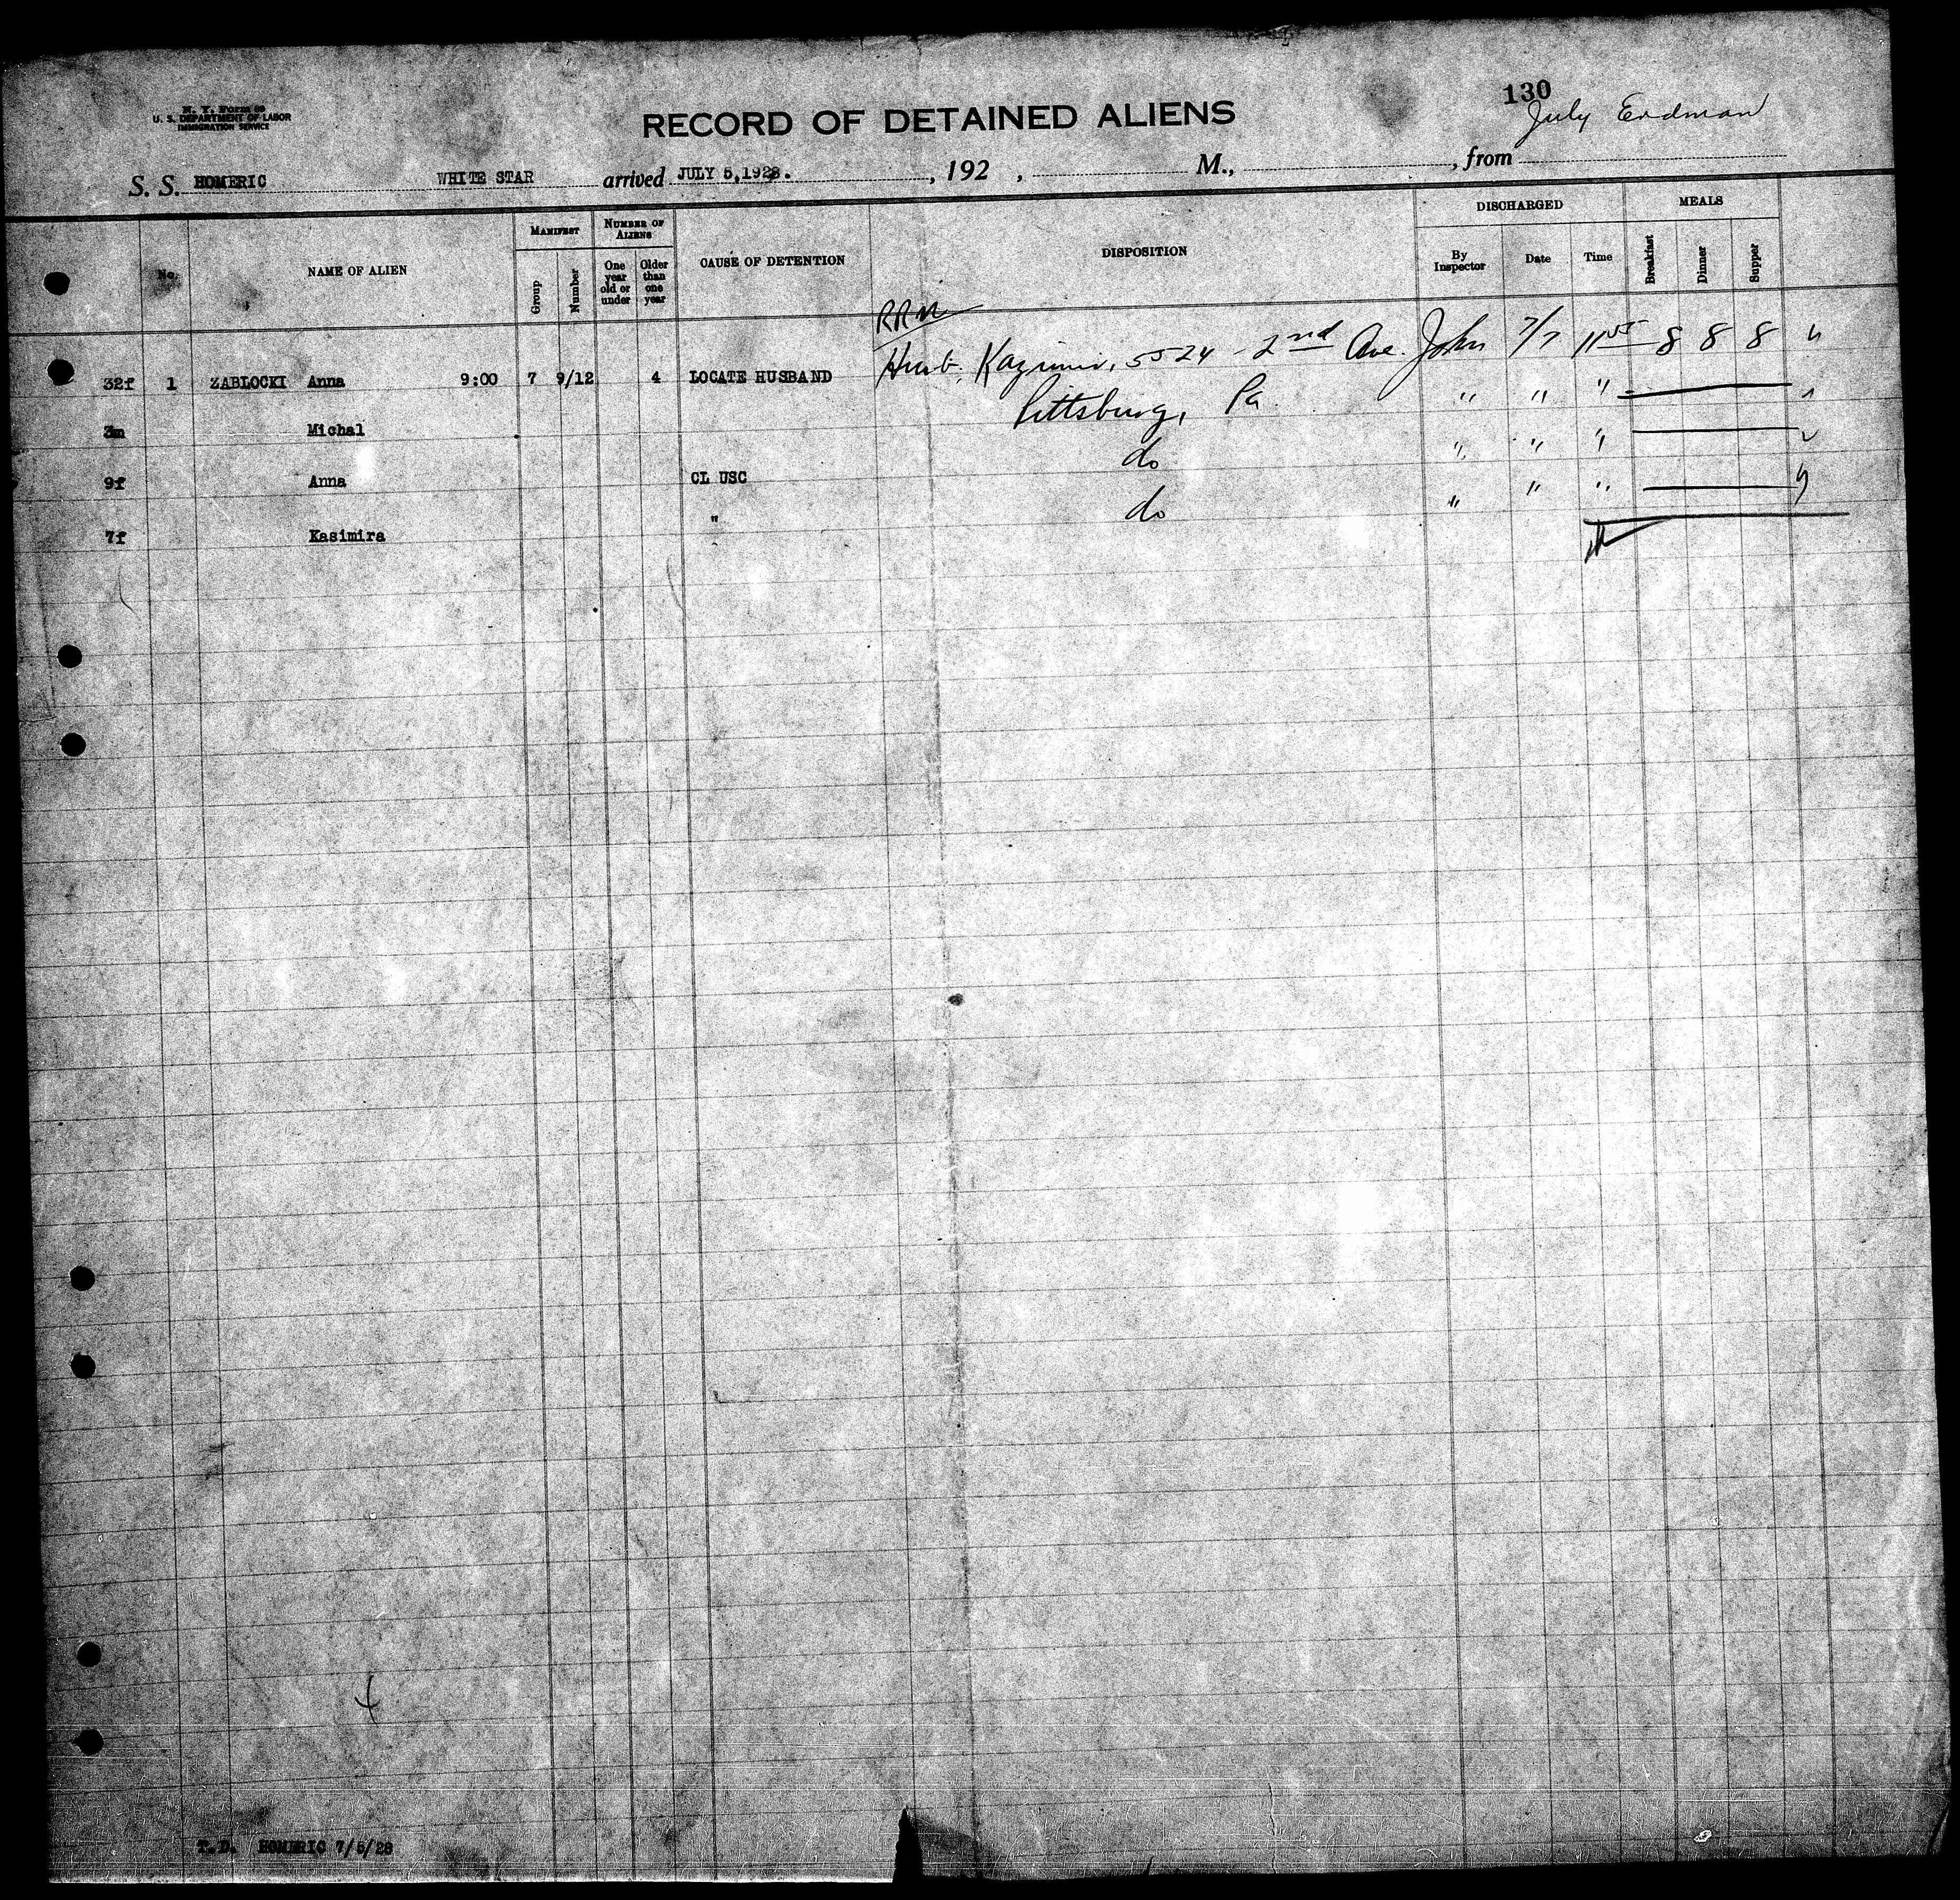 130
N. Y. Form 99
U. S. DEPARTMENT OF LABOR
IMMIGRATION SERVICE
RECORD OF DETAINED ALIENS
July Erdman
S. S. HOMERIC WHITE STAR arrived JULY 5, 1928. , 192 , M., , from
No.
NAME OF ALIEN
MANIFEST
Group
Number
NUMBER OF ALIENS
One year old or under
Older than one year
CAUSE OF DETENTION
DISPOSITION
DISCHARGED
By Inspector
Date
Time
MEALS
Breakfast
Dinner
Supper
32f 1 ZABLOCKI Anna 9:00 7 9/12 4 LOCATE HUSBAND Husb. Kazimir, 5524 - 2nd Ave. John 7/7 1155 8 8 8
3m Michal Pittsburg, Pa " " "
9f Anna CL USC do " " "
7f Kasimira " do " " "
T.D. HOMERIC 7/5/28